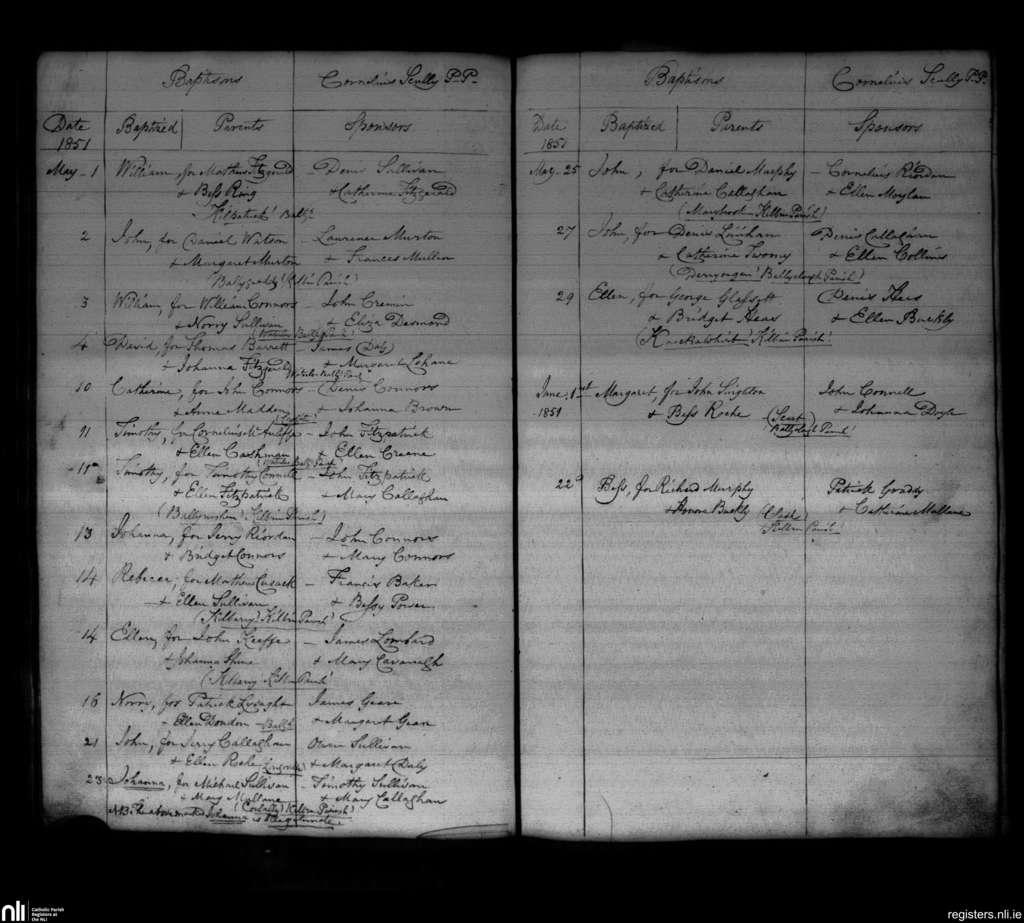 Baptisms Cornelius Scully P.P.
Date Baptized Parents Sponsors
1851
May 1 William, for Matthew Fitzgerald Denis Sullivan
+ Bess Ring + Catherine Fitzgerald
Kilpatrick
2 John, for Daniel Watson - Laurence Murton
+ Margaret Murton + Frances Mullon
3 William, for William Connors - John Cremin
+ Norry Sullivan + Eliza Desmond
4 David, for Thomas Barrett - James (Daly)
+ Johanna Fitzgerald + Margaret Lehane
10 Catherine, for John Connors - Denis Connors
+ Anne Madden + Johanna Brown
11 Timothy, for Cornelius McAuliffe - John Fitzpatrick
+ Ellen Cashman + Ellen Creene
11 Timothy, for Timothy Connell - John Fitzpatrick
+ Ellen Fitzpatrick + Mary Callaghan
Parish)
13 Johanna, for Jerry Riordan - John Connors
+ Bridget Connors + Mary Connors
14 Rebecca, for Matthew Cusack - Francis Baker
+ Ellen Sullivan + Bessy Power
(Killany) Parish)
14 Ellen, for John Keeffe - James Lombard
+ Johanna Shine + Mary Cavanagh
(Killany Parish!
16 Norry, for Patrick James Geare
+ Ellen Condon + Margaret Geare
21 John, for Jerry Callaghan Owen Sullivan
+ Ellen Roche + Margaret Daly
23 Johanna, for Michael Sullivan - Timothy Sullivan
+ Mary Mullane + Mary Callaghan
Parish)
NB. The above named Johanna is Illegitimate
Baptisms Cornelius Scully P.P.
Date Baptized Parents Sponsors
1851
May 25 John, for Daniel Murphy - Cornelius Riordan
+ Catherine Callaghan + Ellen Moylan
Parish)
27 John, for Denis Linihan Denis Callaghan
+ Catherine Twomy + Ellen Collins
Parish)
29 Ellen, for George Glassett Denis Heas
+ Bridget Heas + Ellen Buckly
Parish!
June 1st Margaret for John Singleton John Connell
1851 + Bess Roche + Johanna Doyle
Parish!
22d Bess, for Richard Murphy Patrick Graddy
+ Honora Buckly + Catherine Mullane
Parish!
nli
Catholic Parish
Registers at
the NLI
registers.nli.ie